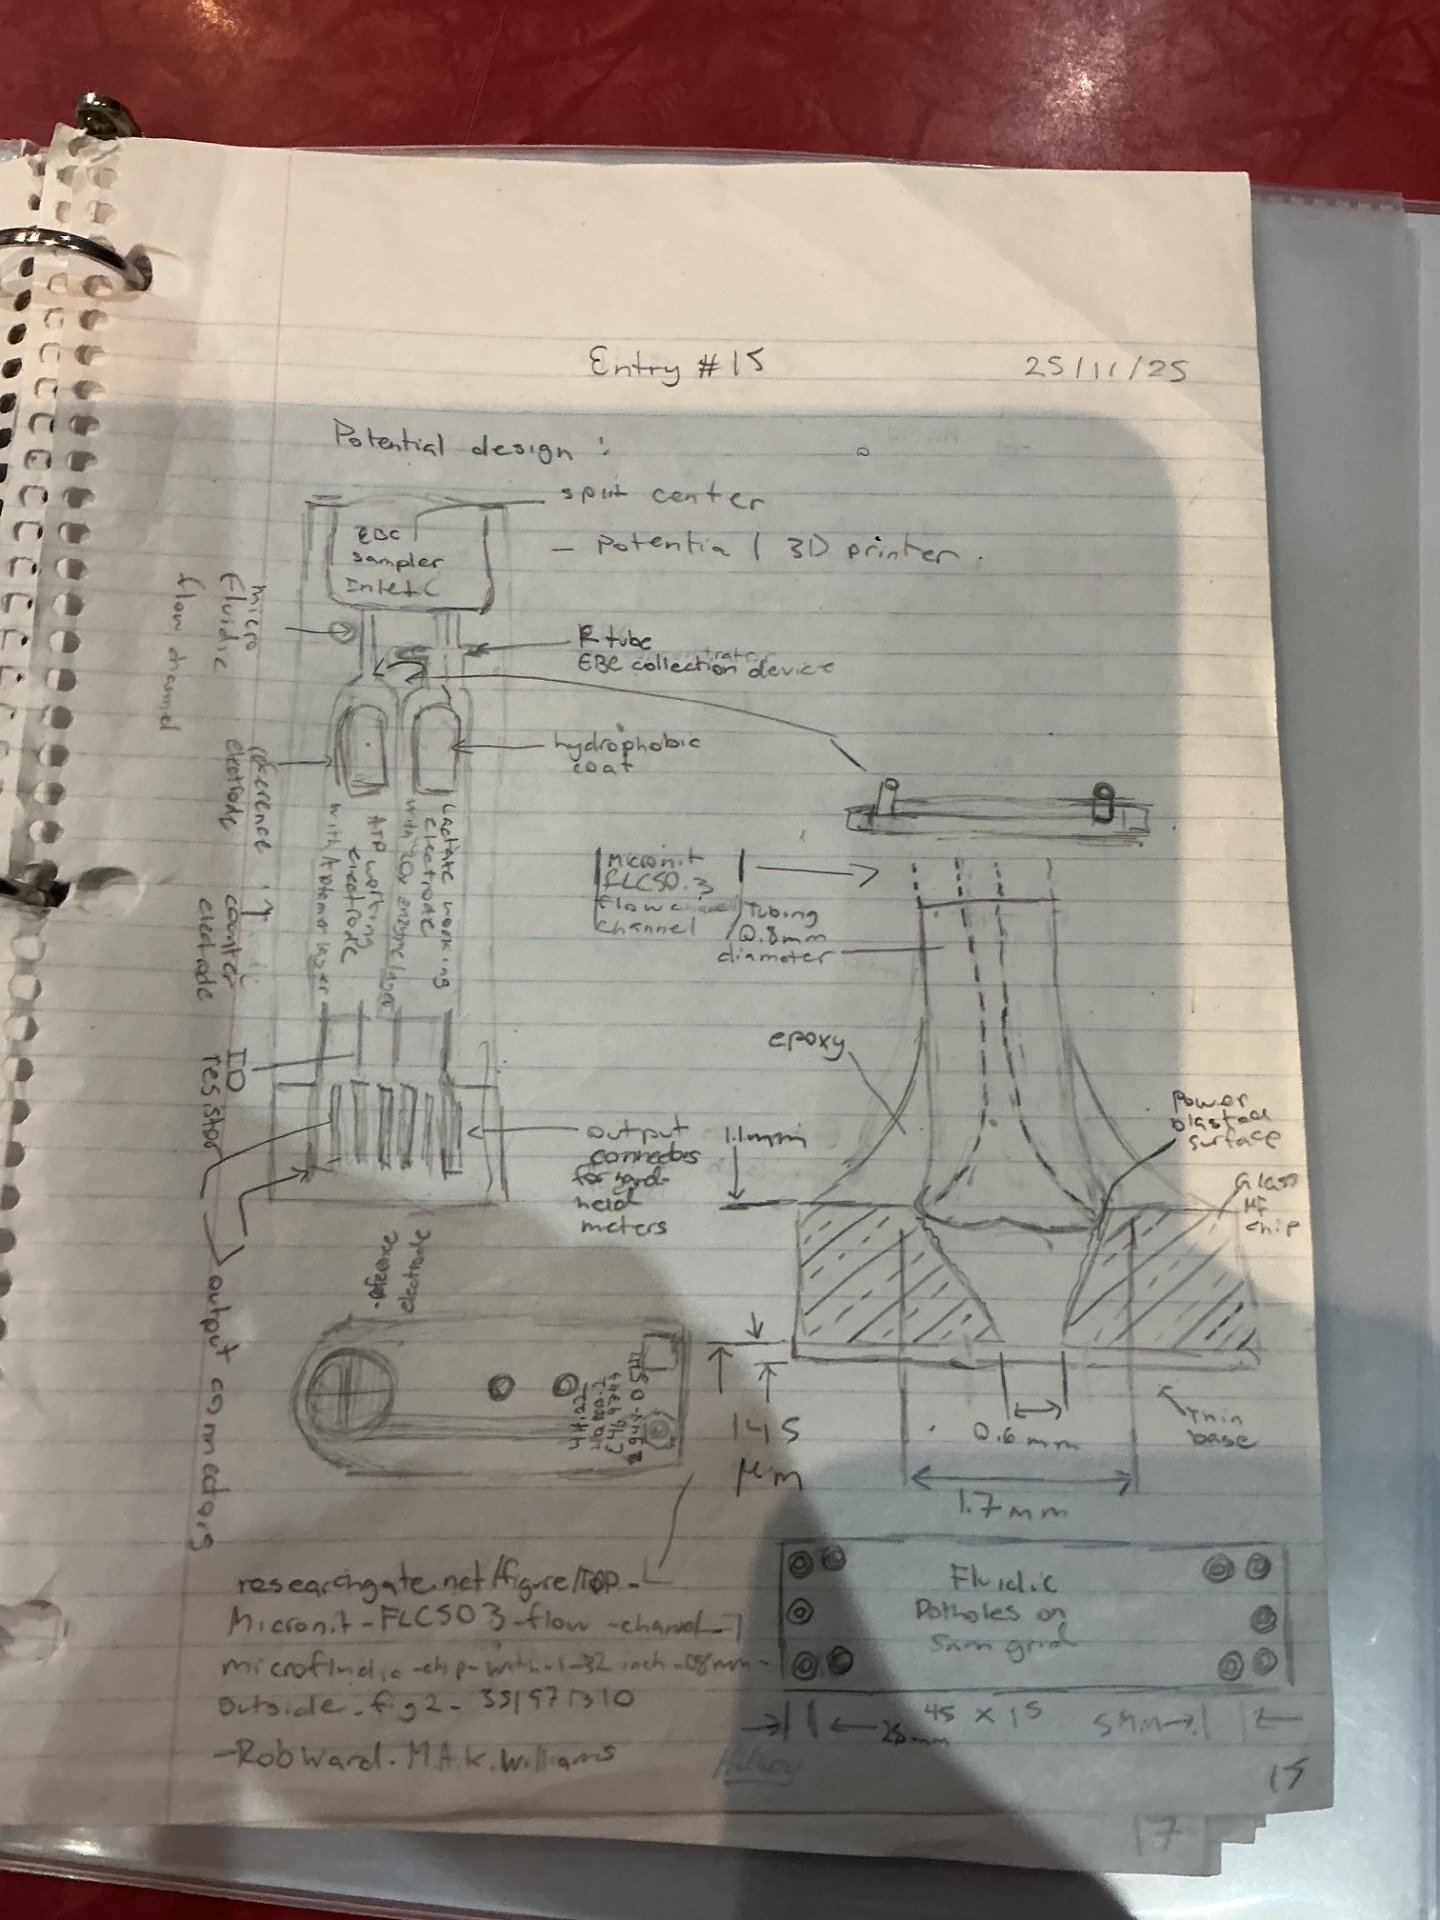 Entry #15
25/11/25
Potential design :
split center
- Potential 3D printer.
EBC
sampler
Inlet C
micro
Fluidic
flow channel
R tube
EBC collection device
hydrophobic
coat
reference
electrode
counter
electrode
Lactate working
electrode
with LOx enzyme layer
ATP working
electrode
with Aptamer layer
ID
resistor
output
connectors
for hand-
held
meters
output connectors
Micronit
FLC50.3
Flow channel
channel
Tubing
0.8mm
diameter
epoxy
1.1mm
Power
blasted
surface
Glass
MF
chip
145
μm
0.6mm
Thin
base
1.7mm
reference
electrode
researchgate.net/figure/TOP-
Micronit-FLC503-flow-channel-
microfluidic-chip-with-1-32 inch-08mm-
outside-fig2-351971310
-Rob Ward. M.A.K. Williams
Fluidic
Potholes on
5mm grid
45 x 15
5mm
Hilroy
15
17